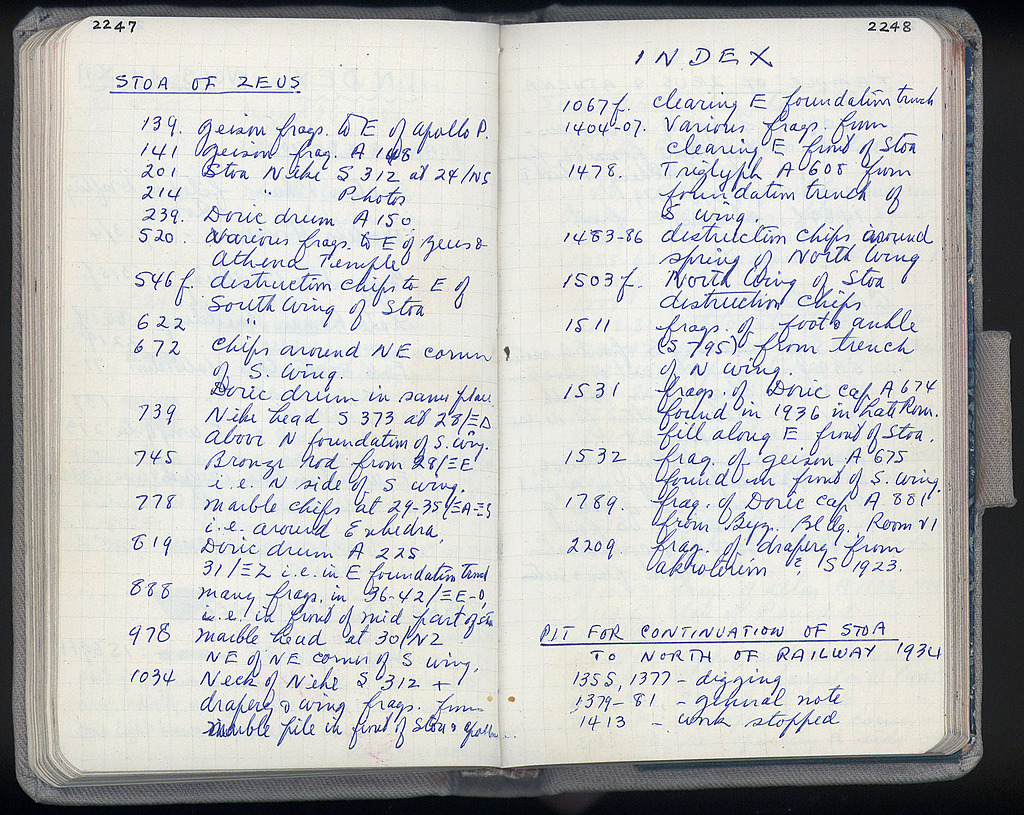 2247
STOA OF ZEUS
139. geison frags. to E of Apollo P.
141 geison frag. A 148
201 Stoa Nike S 312 at 24/NS
214 Photos
239. Doric drum A 150
520. Various frags. to E of Zeus &
Athena Temple
546 f. destruction chips to E of
South Wing of Stoa
622 "
672 chips around NE corner
of S. wing.
Doric drum in same place
739 Nike head S 373 at 28/ΞΔ
above N foundation of S. wing.
745 Bronze rod from 28/ΞE
i.e. N side of S wing.
778 marble chips at 29-35/ΞA-ΞS
i.e. around Exhedra.
819 Doric drum A 225
31/ΞZ i.e. in E foundation trench
888 many frags. in 36-42/ΞE-O,
i.e. in front of mid part of Stoa
978 marble head at 30/NZ
NE of NE corner of S wing.
1034 Neck of Nike S 312 +
drapery & wing frags. from
marble pile in front of Stoa & Apollo
2248
INDEX
1067 f. clearing E foundation trench
1404-07. Various frags. from
clearing E front of Stoa
1478. Triglyph A 608 from
foundation trench of
S wing.
1483-86 destruction chips around
spring of North Wing
1503 f. North Wing of Stoa
destruction chips
1511 frags. of foot & ankle
(S 795) from trench
of N wing.
1531 frags. of Doric cap A 674
found in 1936 in Late Rom.
fill along E front of Stoa.
1532 frag. of geison A 675
found in front of S. wing.
1789. frag. of Doric cap A 881
from Byz. Bldg. Room VI
2209 frag. of drapery from
akroterion S 1923.
PIT FOR CONTINUATION OF STOA
TO NORTH OF RAILWAY 1934
1355, 1377 - digging
1379-81 - general note
1413 - work stopped